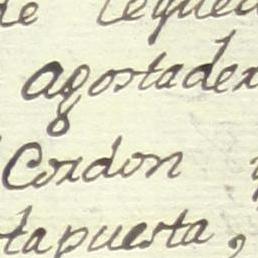 de
agostader
Cordon
tapuesta,